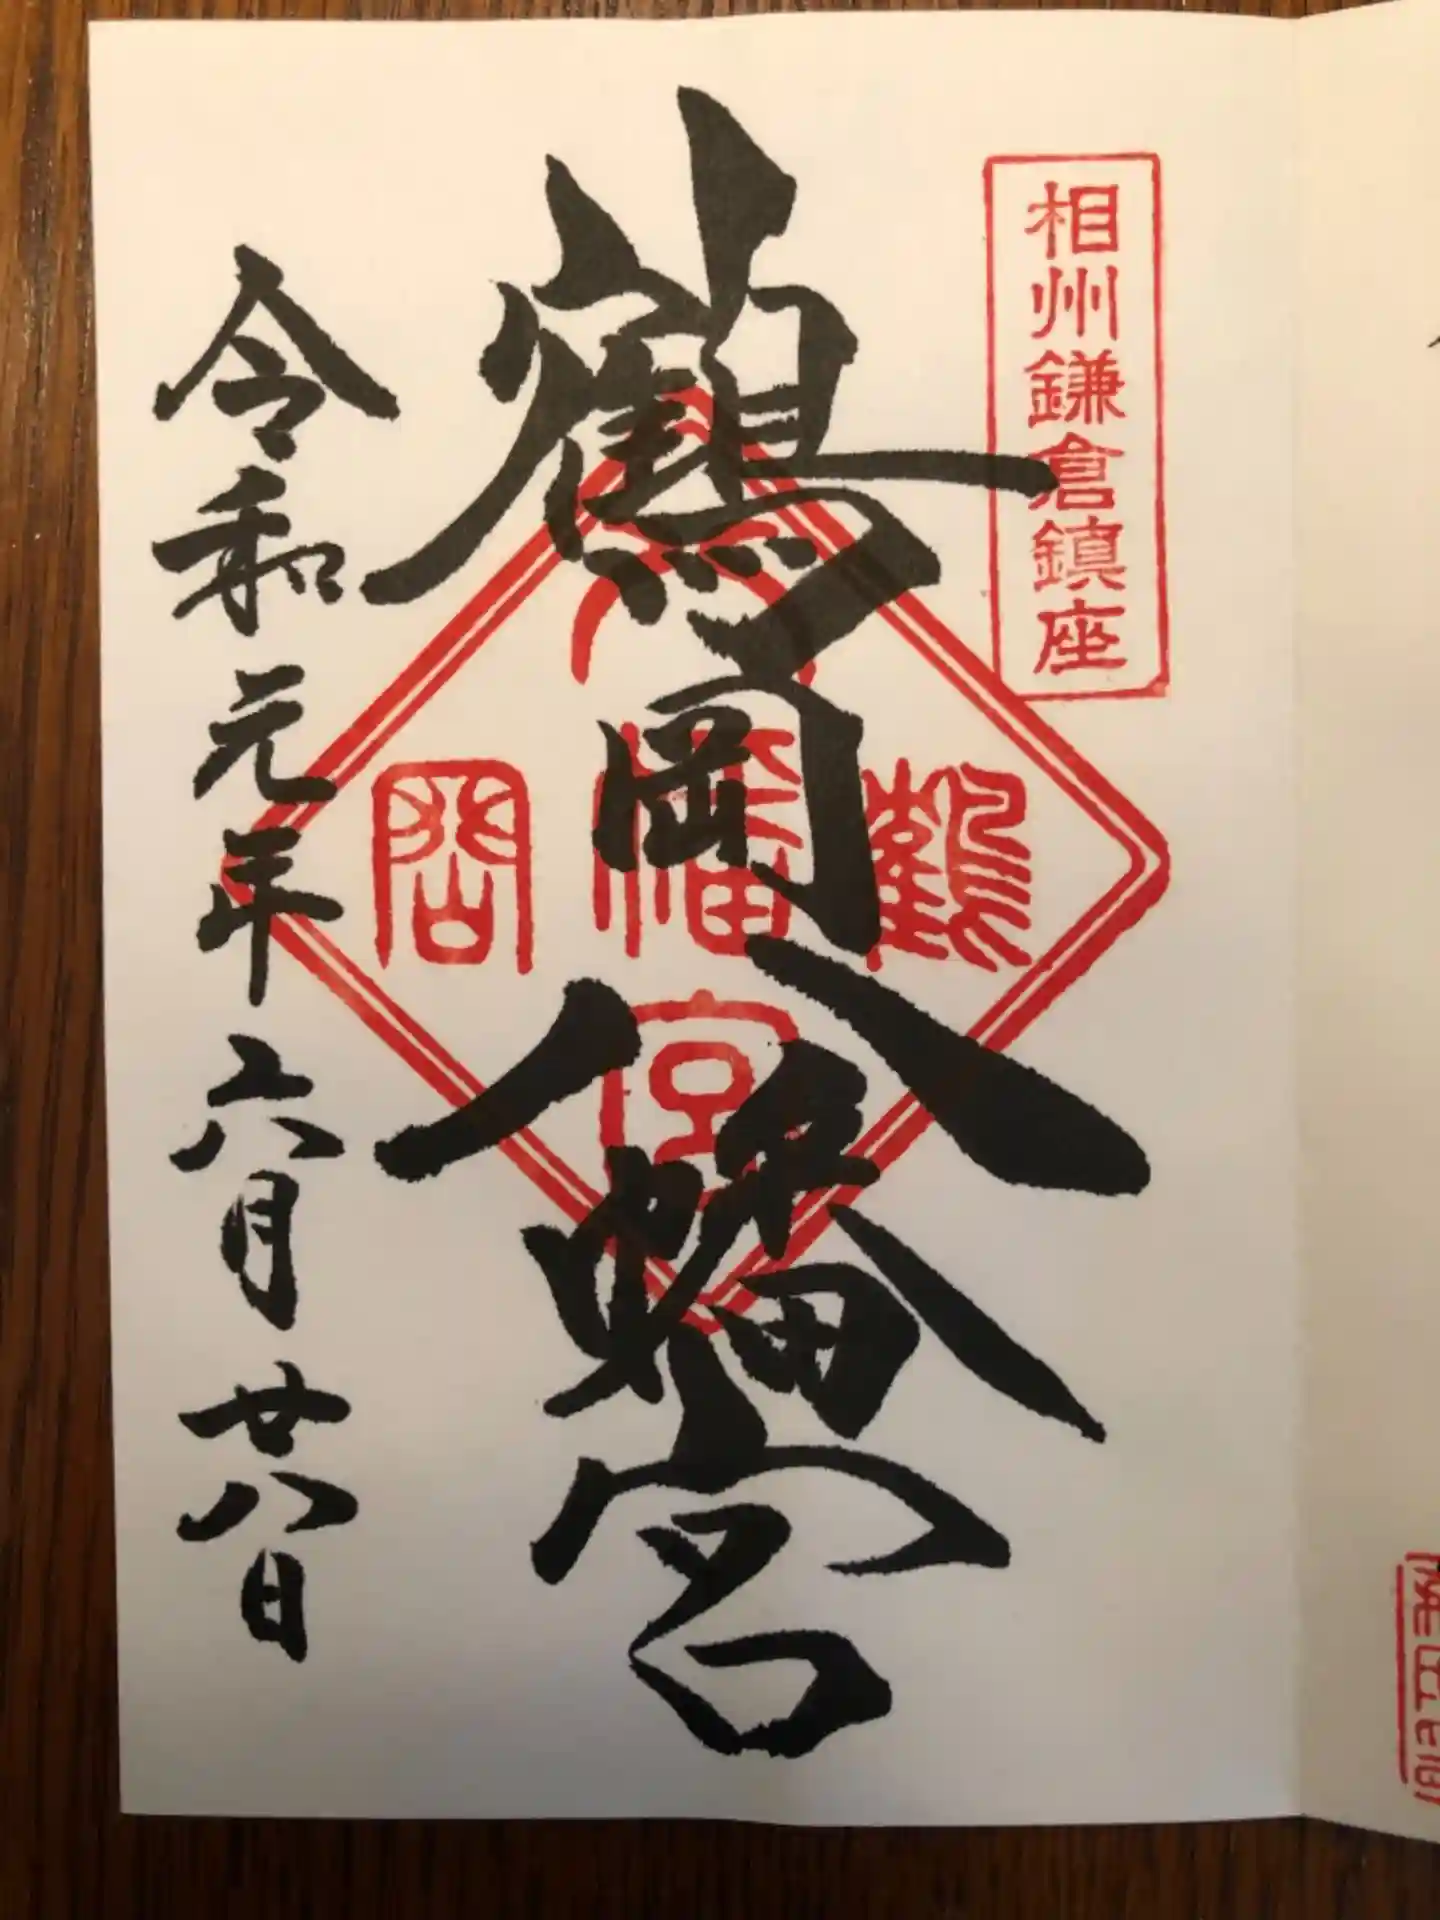 相州鎌倉鎮座
鶴岡八幡宮
八
鶴幡岡
宮
令和元年六月廿八日